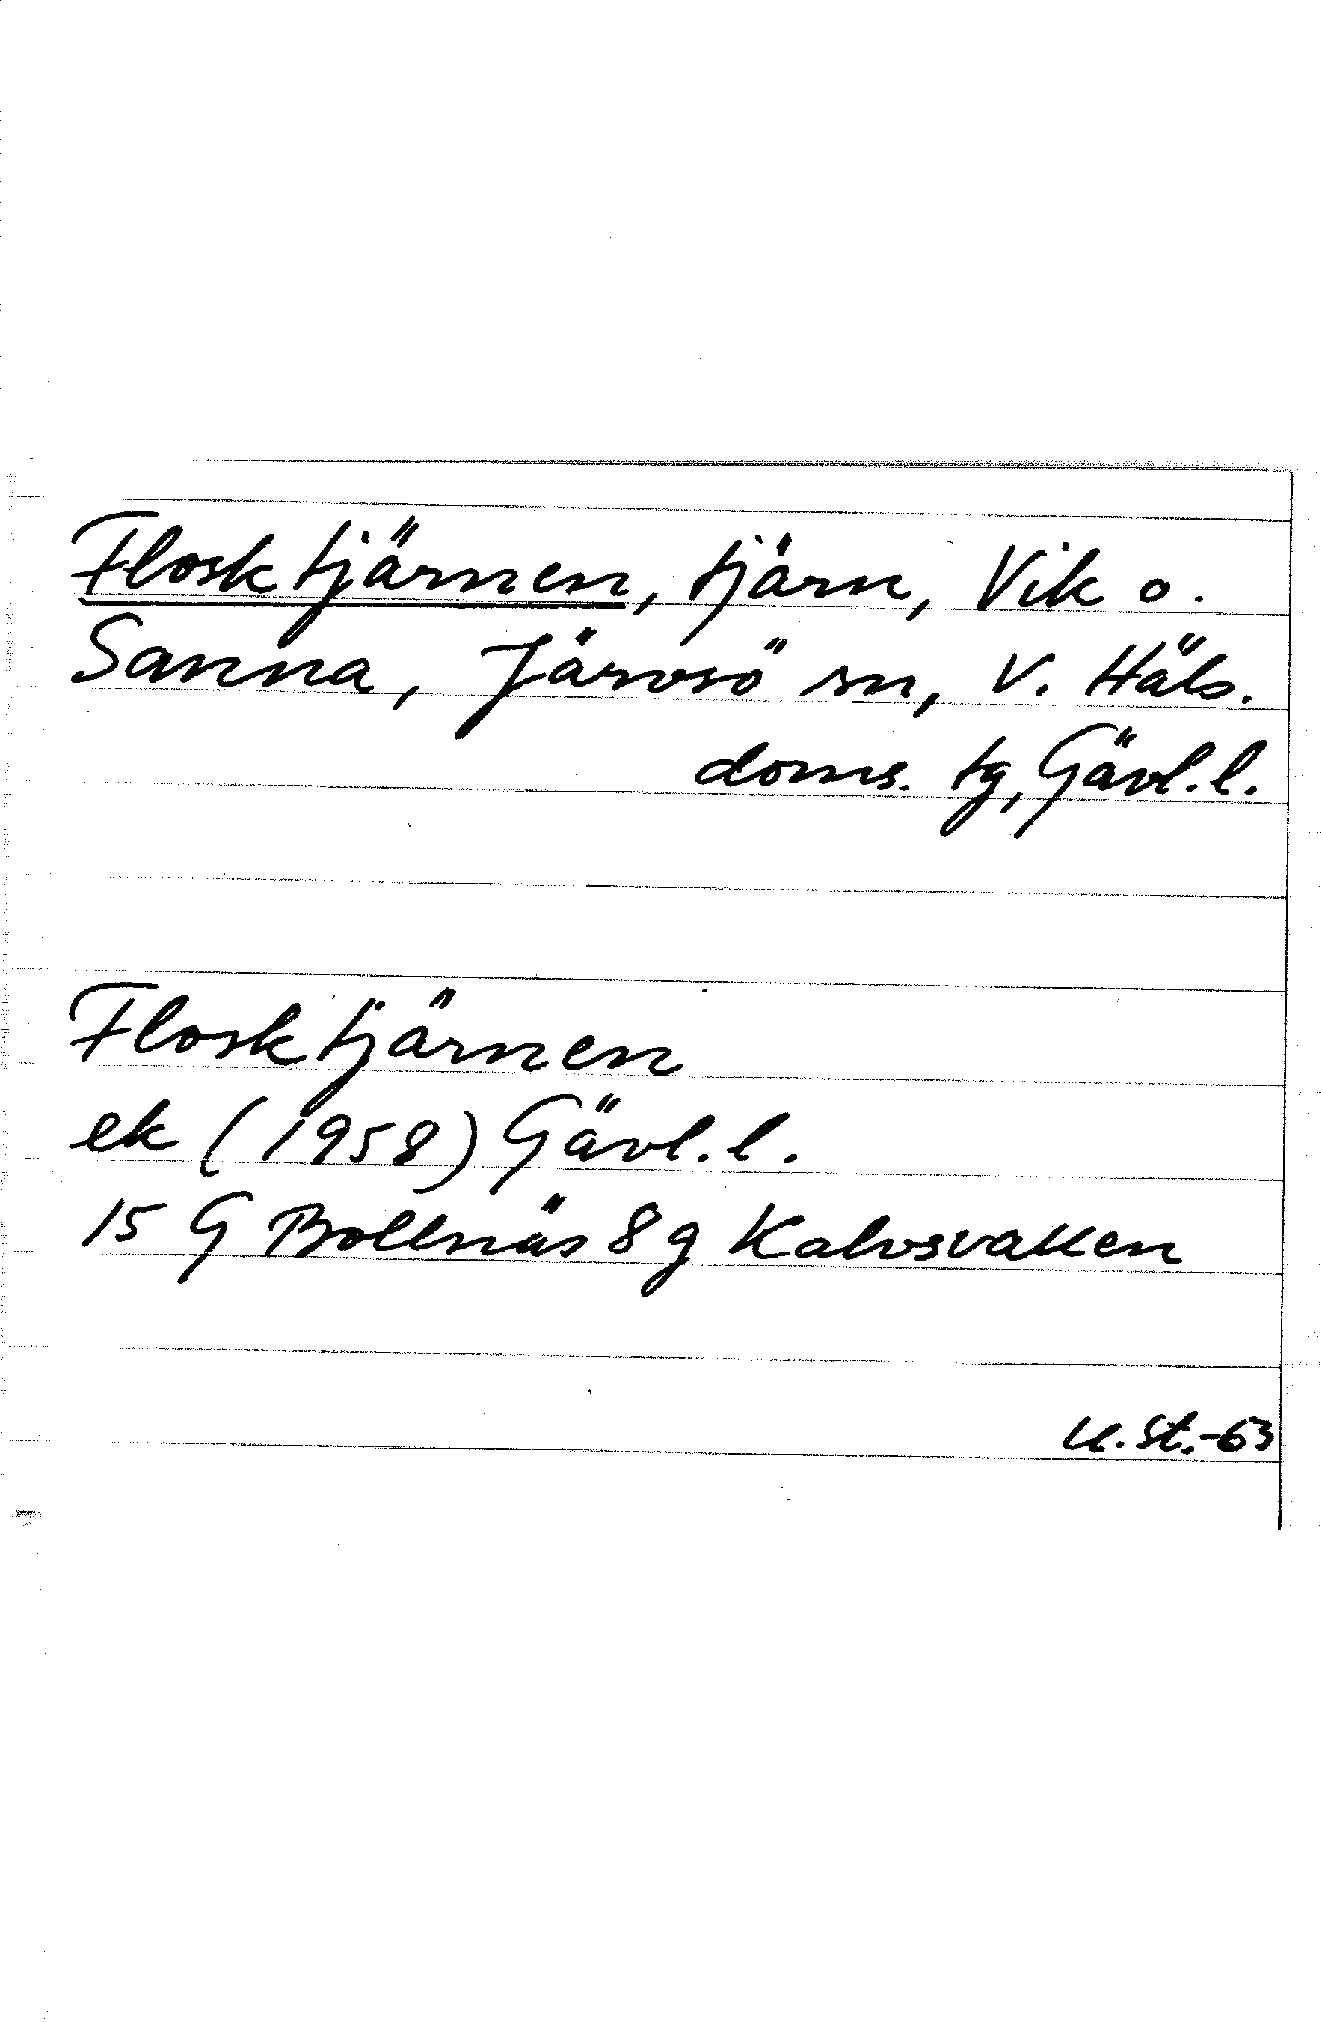 Flosktjärnen, tjärn, Vik o.
Sanna, Järvsö sn, V. Häls.
doms. tg, Gävl.l.
Flosktjärnen
ek (1958) Gävl.l.
15 G Bollnäs 8 g Kalvsvallen
U.St.-63